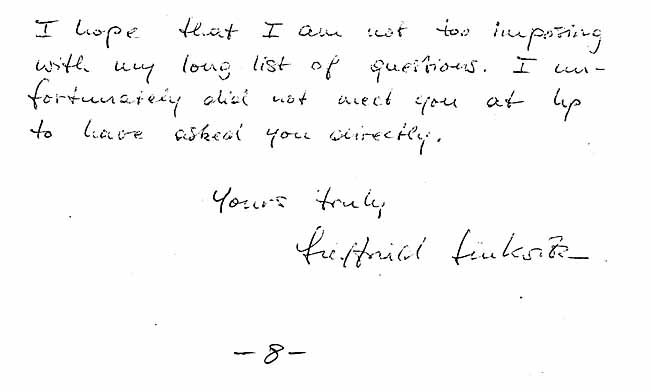 I hope that I am not too imposing
with my long list of questions. I un-
fortunately did not meet you at Up
to have asked you directly.
Yours truly,
- 8 -